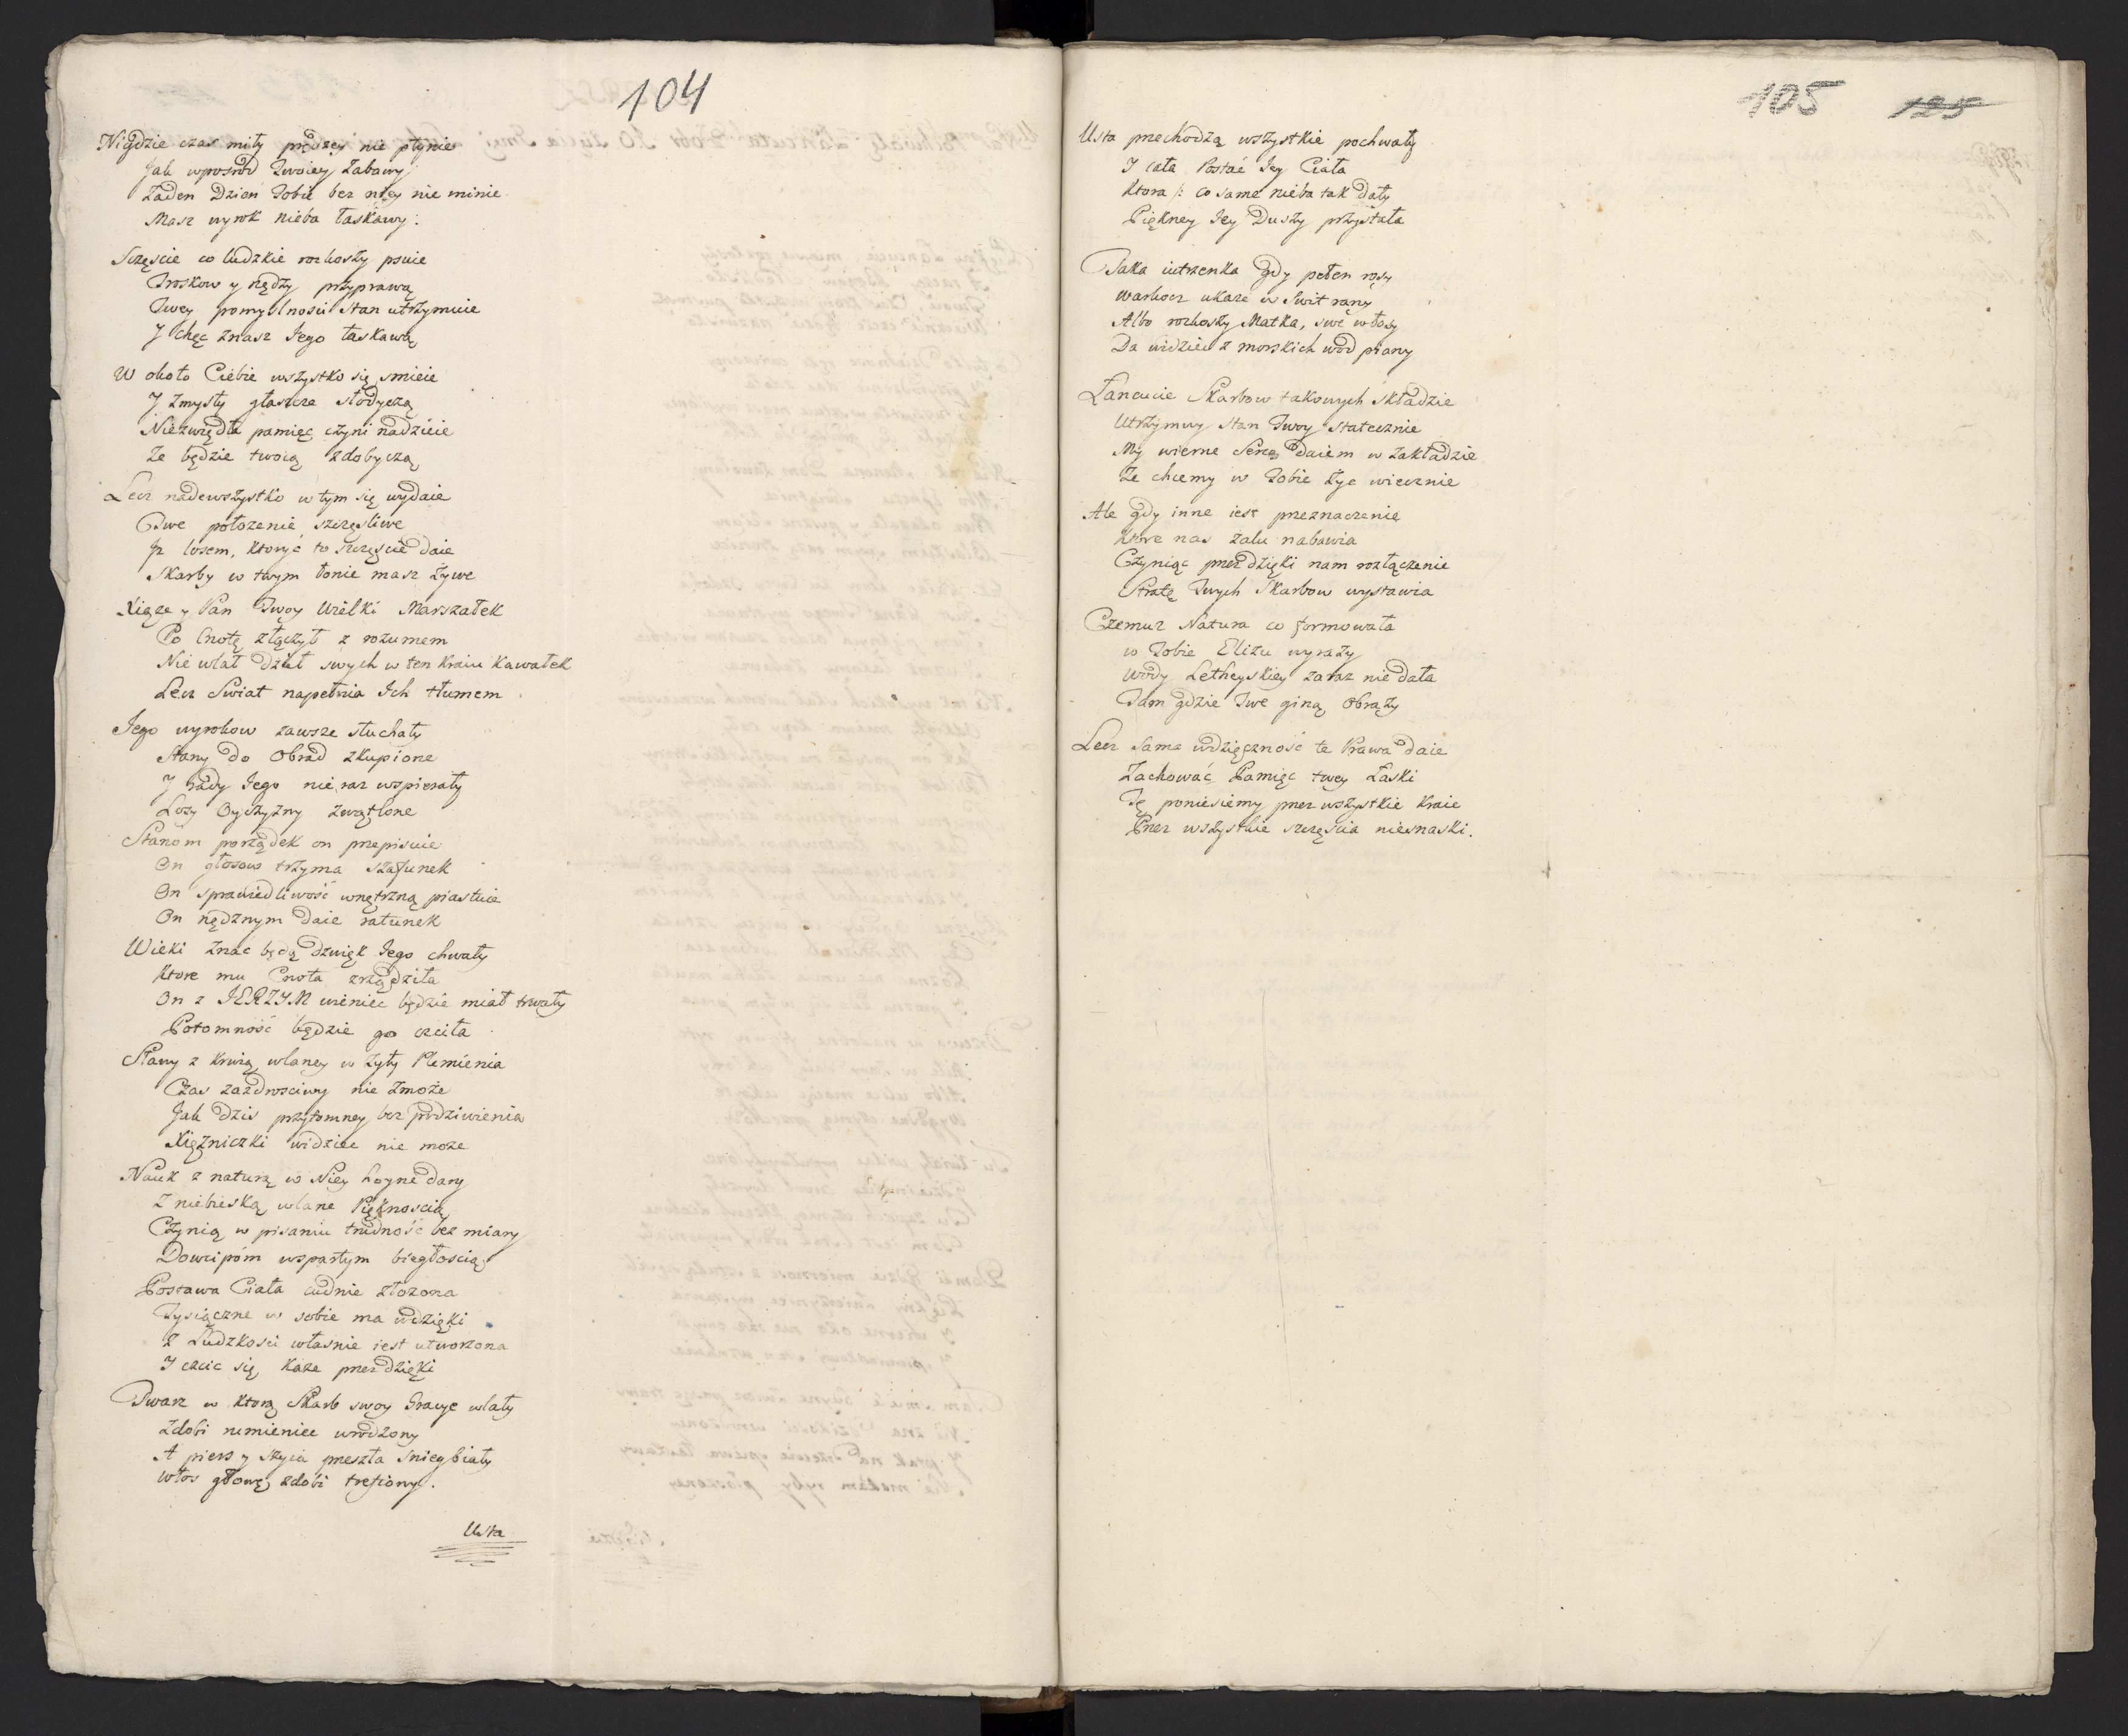 104
Nigdzie czas miły prędzey nie płynie
Jak wposrod Twoiey Zabawy
Zaden Dzien Tobie bez niey nie minie
Masz wyrok nieba łaskawy:
Szczęscie co ludzkie roskoszy psuie
Troskow y nędzy przyprawą
Twey pomyslnosci stan utrzymuie
Y chęc znasz Jego łaskawą
W około Ciebie wszystko się smieie
Y Zmysły głaszcze słodyczą
Niezwiędła pamięc czyni nadzieie
Ze będzie twoią zdobyczą
Lecz nadewszystko w tym się wydaie
Twe położenie szczęsliwe
Jz losem, ktoryć to szczęscie daie
Skarby w twym łonie masz żywe
Xiąze y Pan Twoy Wielki Marszałek
Co Cnotę złączył z rozumem
Nie wlał dzieł swych w ten kraiu kawałek
Lecz Swiat napełnia Ich tłumem
Jego wyrokow zawsze słuchały
Stany do Obrad skupione
Y Rady Jego nie raz wspierały
Losy Oyczyzny zwątlone
Stanom porządek on przepisuie
On głosow trzyma szafunek
On sprawiedliwość wnętrzną piastuie
On nędznym daie ratunek
Wieki znac będą dzwięk Jego chwały
Ktore mu Cnota zrządziła
On z JERZYM wieniec będzie miał trwały
Potomność będzie go czciła
Sławy z krwią wlaney w żyły Plemienia
Czas zazdrosciwy nie zmoże
Jak dzis przytomney bez podziwienia
Xięzniczki widziec nie moze
Nauk z naturą w Niey hoyne dary
Z niebieską wlane Pięknoscią
Czynią w pisaniu trudność bez miary
Dowcipóm wspartym biegłoscią
Postawa Ciała cudnie złozona
Tysiączne w sobie ma wdzięki
Z Ludzkosci własnie iest utworzona
I czcic się każe przez dzięki
Twarz w ktorą Skarb swoy Gracye wlały
Zdobi rumieniec wrodzony
A piers y szyia przeszła snieg biały
Włos głowę zdobi trefiony.
Usta
105 125
Usta przechodzą wszystkie pochwały
I cała Postać Jey Ciała
Ktora /: co same nieba tak dały
Piękney Jey Duszy przystała
Taka iutrzenka gdy pełen rosy
Warkocz ukaże w Swit rany
Albo roskoszy Matka, swe włosy
Da widzieć z morskich wod piany
Łancucie Skarbow takowych składzie
Utrzymuy stan Twoy statecznie
My wierne Serca daiem w zakładzie
Ze chcemy w Tobie życ wiecznie
Ale gdy inne iest przeznaczenie
Ktore nas żalu nabawia
Czyniąc przez dzięki nam rozłączenie
Stratę Twych Skarbow wystawia
Czemuz Natura co formowała
w Tobie Elizu wyrazy
Wody Letheyskiey zaraz nie dała
Tam gdzie Twe giną Obrazy
Lecz sama wdzięczność te Prawa daie
Zachować Pamięc twey Łaski
Tę poniesiemy przez wszystkie kraie
Przez wszystkie szczęscia niesnaski.